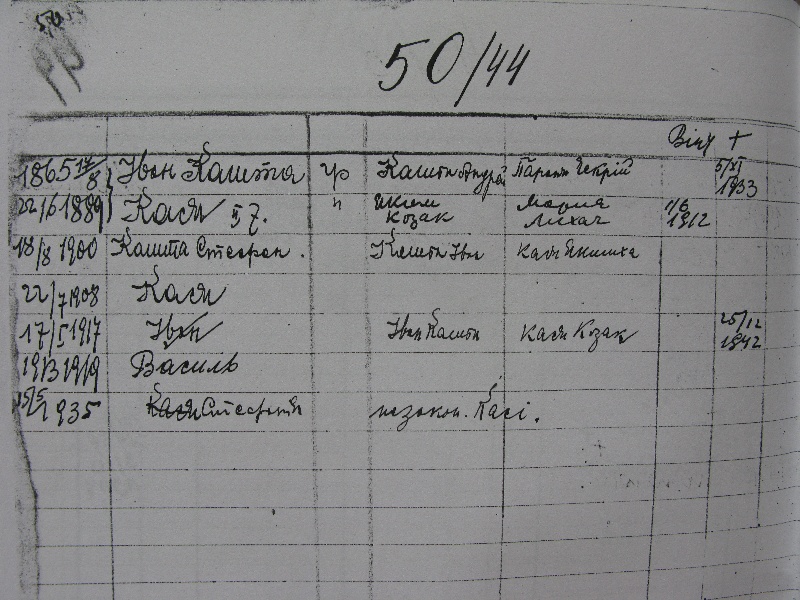 50/44
Вінч +
1865 17/8 Іван Кашта гр Кашта Андрій Параня 5/XI 1933
22/6 1889 Кася ІІ ж. " Яким Козак Мария Лихач 11/6 1912
18/8 1900 Кашта Стефан. Кашта Іван Кася Якимиха
22/7 1908 Кася
17/I 1917 Іван Іван Кашта Кася Козак 25/12 1942
19/3 1919 Василь
15/5 1935 Кася Стефанія незакон. Касі.